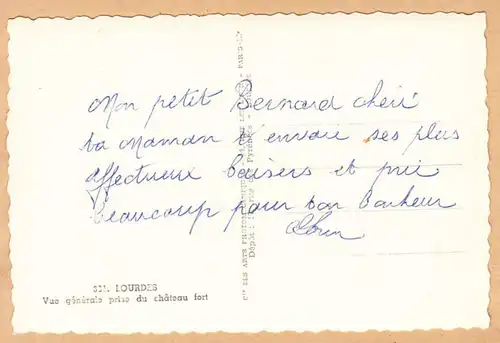 Mon petit Bernard chéri
ta maman t'envoie ses plus
affectueux baisers et prie
beaucoup pour ton bonheur
331. LOURDES
Vue générale prise du château fort
Cie DES ARTS PHOTOMÉCANIQUES